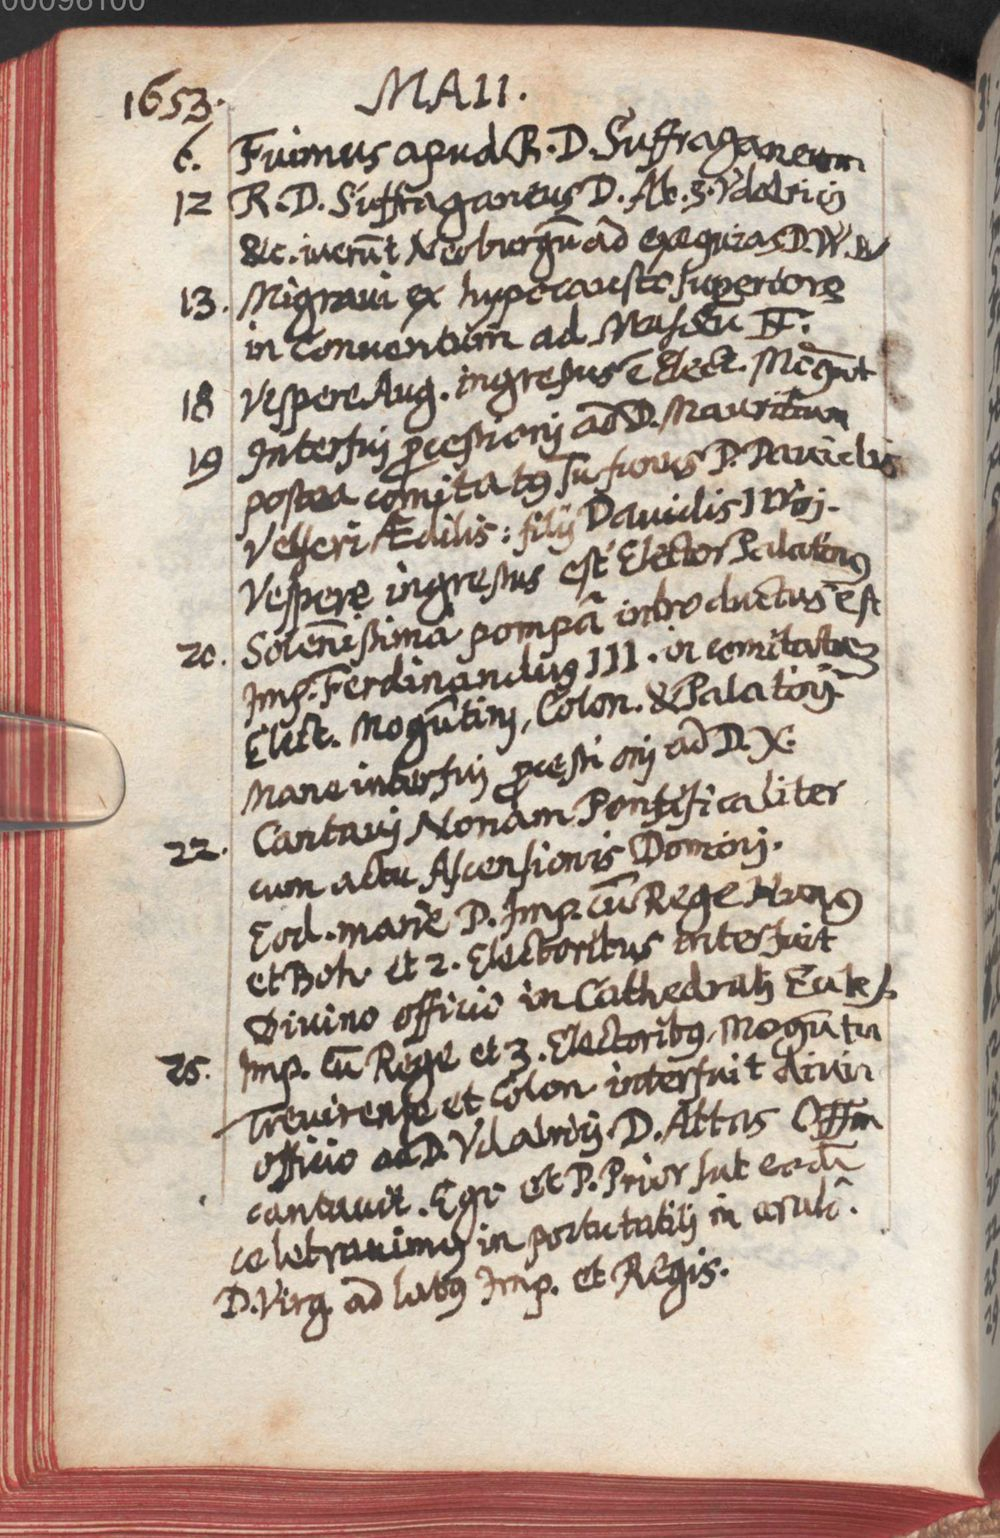 00096100
1653. MAII.
6. Fuimus apud R. D. Suffraganeum
12 R. D. Suffraganeus D. Ab. S. Vdalricij
&c. iuerūt Neoburgū ad exequias D. W. W
13. Migraui ex hypocausto superiore
in Conuentum ad
18 Vespere Aug. ingressus ē Elect. Mogūt
19 Interfuj processionj ad D. Mauritium
postea comitatus sū funus D. Dauidis
Velseri Ædilis: filij Dauidis IIViri.
Vespere ingressus est Elector Palatinus
20. Solennissima pompâ introductus est
Imp. Ferdinandus III. in comitatu
Elect. Mogūtinj, Colon. & Palatinj
Mane interfuj processionj ad D. X.
22. Cantauj Nonam Pontificaliter
cum actu Ascensionis Dominj.
Eod. mane D. Imp. cū Rege Hung
et Boh. et 2. Electoribus interfuit
Diuino officio in Cathedralj Eccles.
25. Imp. cū Rege et 3. Electoribus, Mogūtin
Treuirense et Colon interfuit diuin
officio ad D. Vdalricij. D. Abbas Offm
cantauit. Ego et P. Prior sub eodē
celebrauimus in portatilj in
D. Virg. ad latus Imp. et Regis.